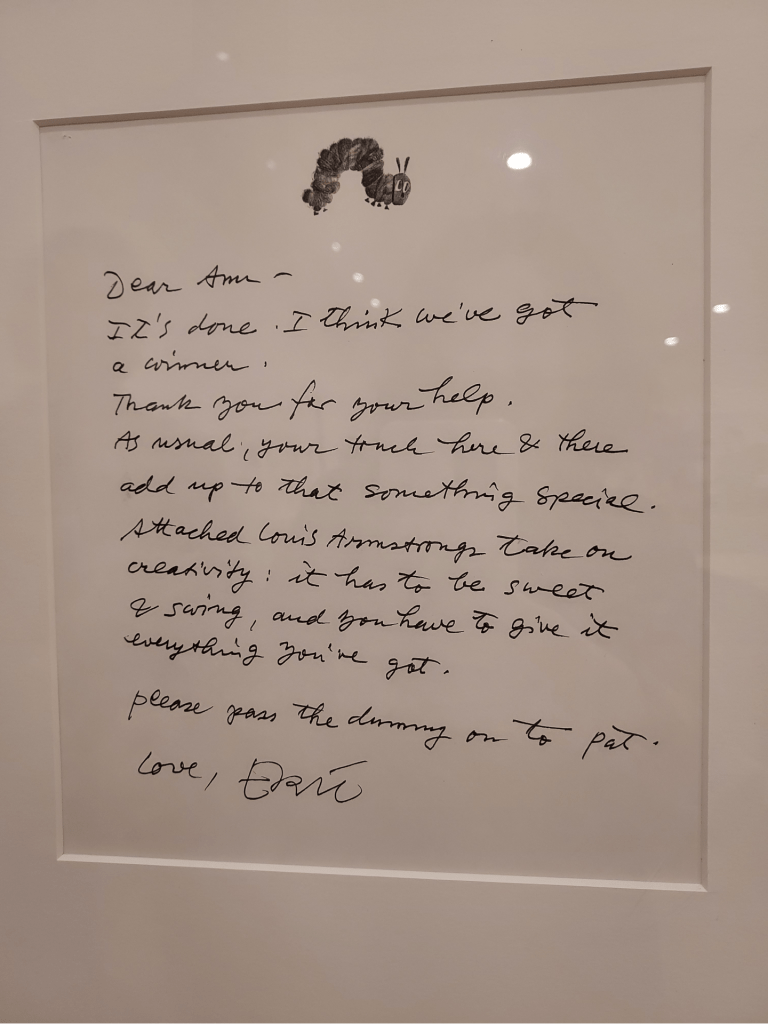 Dear Ann –
It's done. I think we've got
a winner.
Thank you for your help.
As usual, your touch here & there
add up to that something special.
Attached Louis Armstrongs take on
creativity: it has to be sweet
& swing, and you have to give it
everything you've got.
please pass the dummy on to pat.
Love, Eric